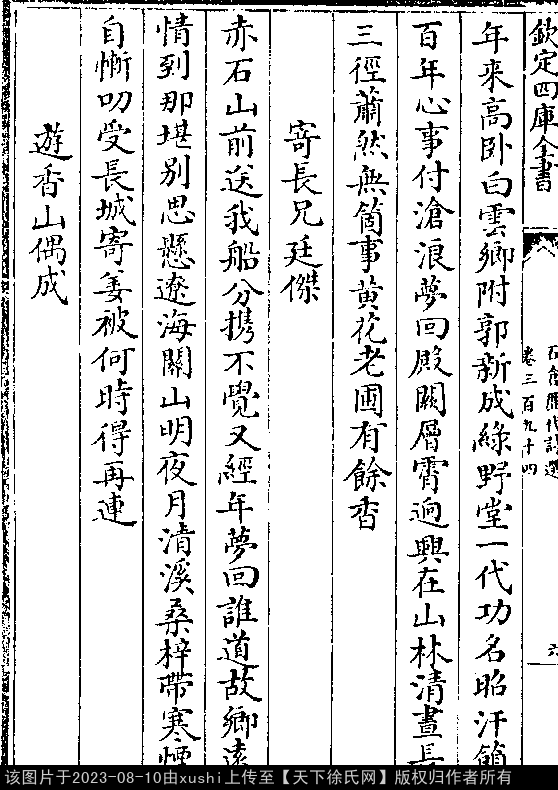 欽定四庫全書
卷三百九十四
年來高卧白雲鄉附郭新成綠野堂一代功名昭汗簡
百年心事付滄浪夢回殿闕層霄逈興在山林清晝長
三徑蕭然無箇事黄花老圃有餘香
寄長兄廷傑
赤石山前送我船分携不覺又經年夢回誰道故鄉遠
情到那堪别思懸遼海關山明夜月清溪桑梓帶寒煙
自慚叨受長城寄姜被何時得再連
遊香山偶成
该图片于2023-08-10由xushi上传至【天下徐氏网】版权归作者所有